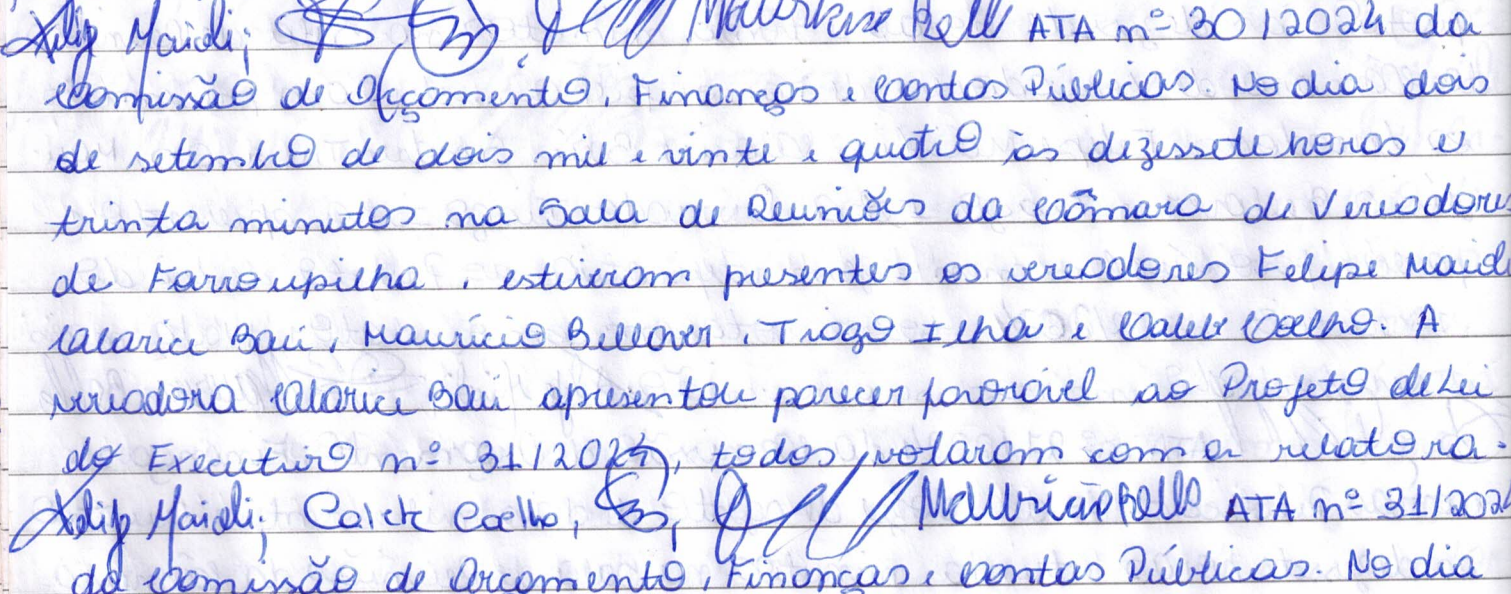 Felipe Maioli; ATA nº 30/2024 da
Comissão de Orçamento, Finanças e Contas Públicas. No dia dois
de setembro de dois mil e vinte e quatro às dezessete horas e
trinta minutos na Sala de Reuniões da Câmara de Vereadore
de Farroupilha, estiveram presentes os vereadores Felipe Maiol
Clarice Baú, Maurício Bellaver, Tiago Ilha e Calebe Coelho. A
vereadora Clarice Baú apresentou parecer favorável ao Projeto de Lei
do Executivo nº 31/2024, todos votaram com a relatora.
Felipe Maioli; Calebe Coelho, Maurício Bello ATA nº 31/202
da Comissão de Orçamento, Finanças e Contas Públicas. No dia